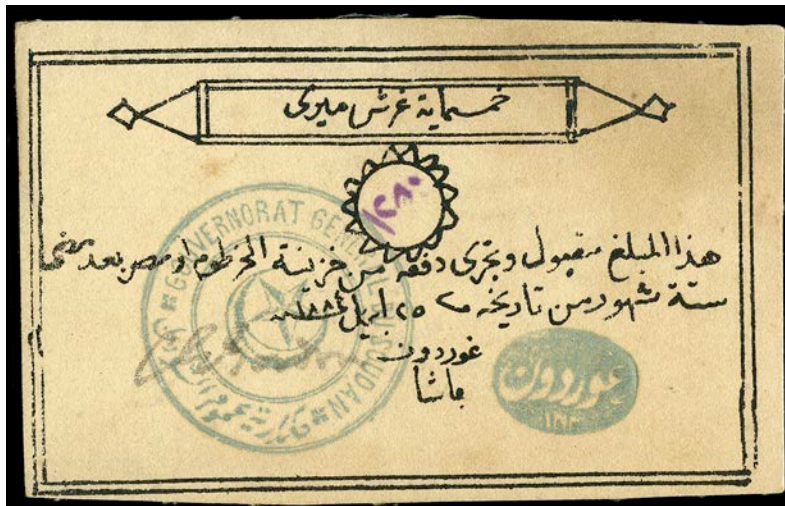 خمسماية غرش ميرى
هذا المبلغ مقبول وتجرى دفعه من خزينة الخرطوم او مصر بعد مضى
ستة شهور من تاريخه ٢٥ ابريل ١٨٨٤
غوردون
باشا
GOVERNORAT GENERAL DU SOUDAN
غوردون